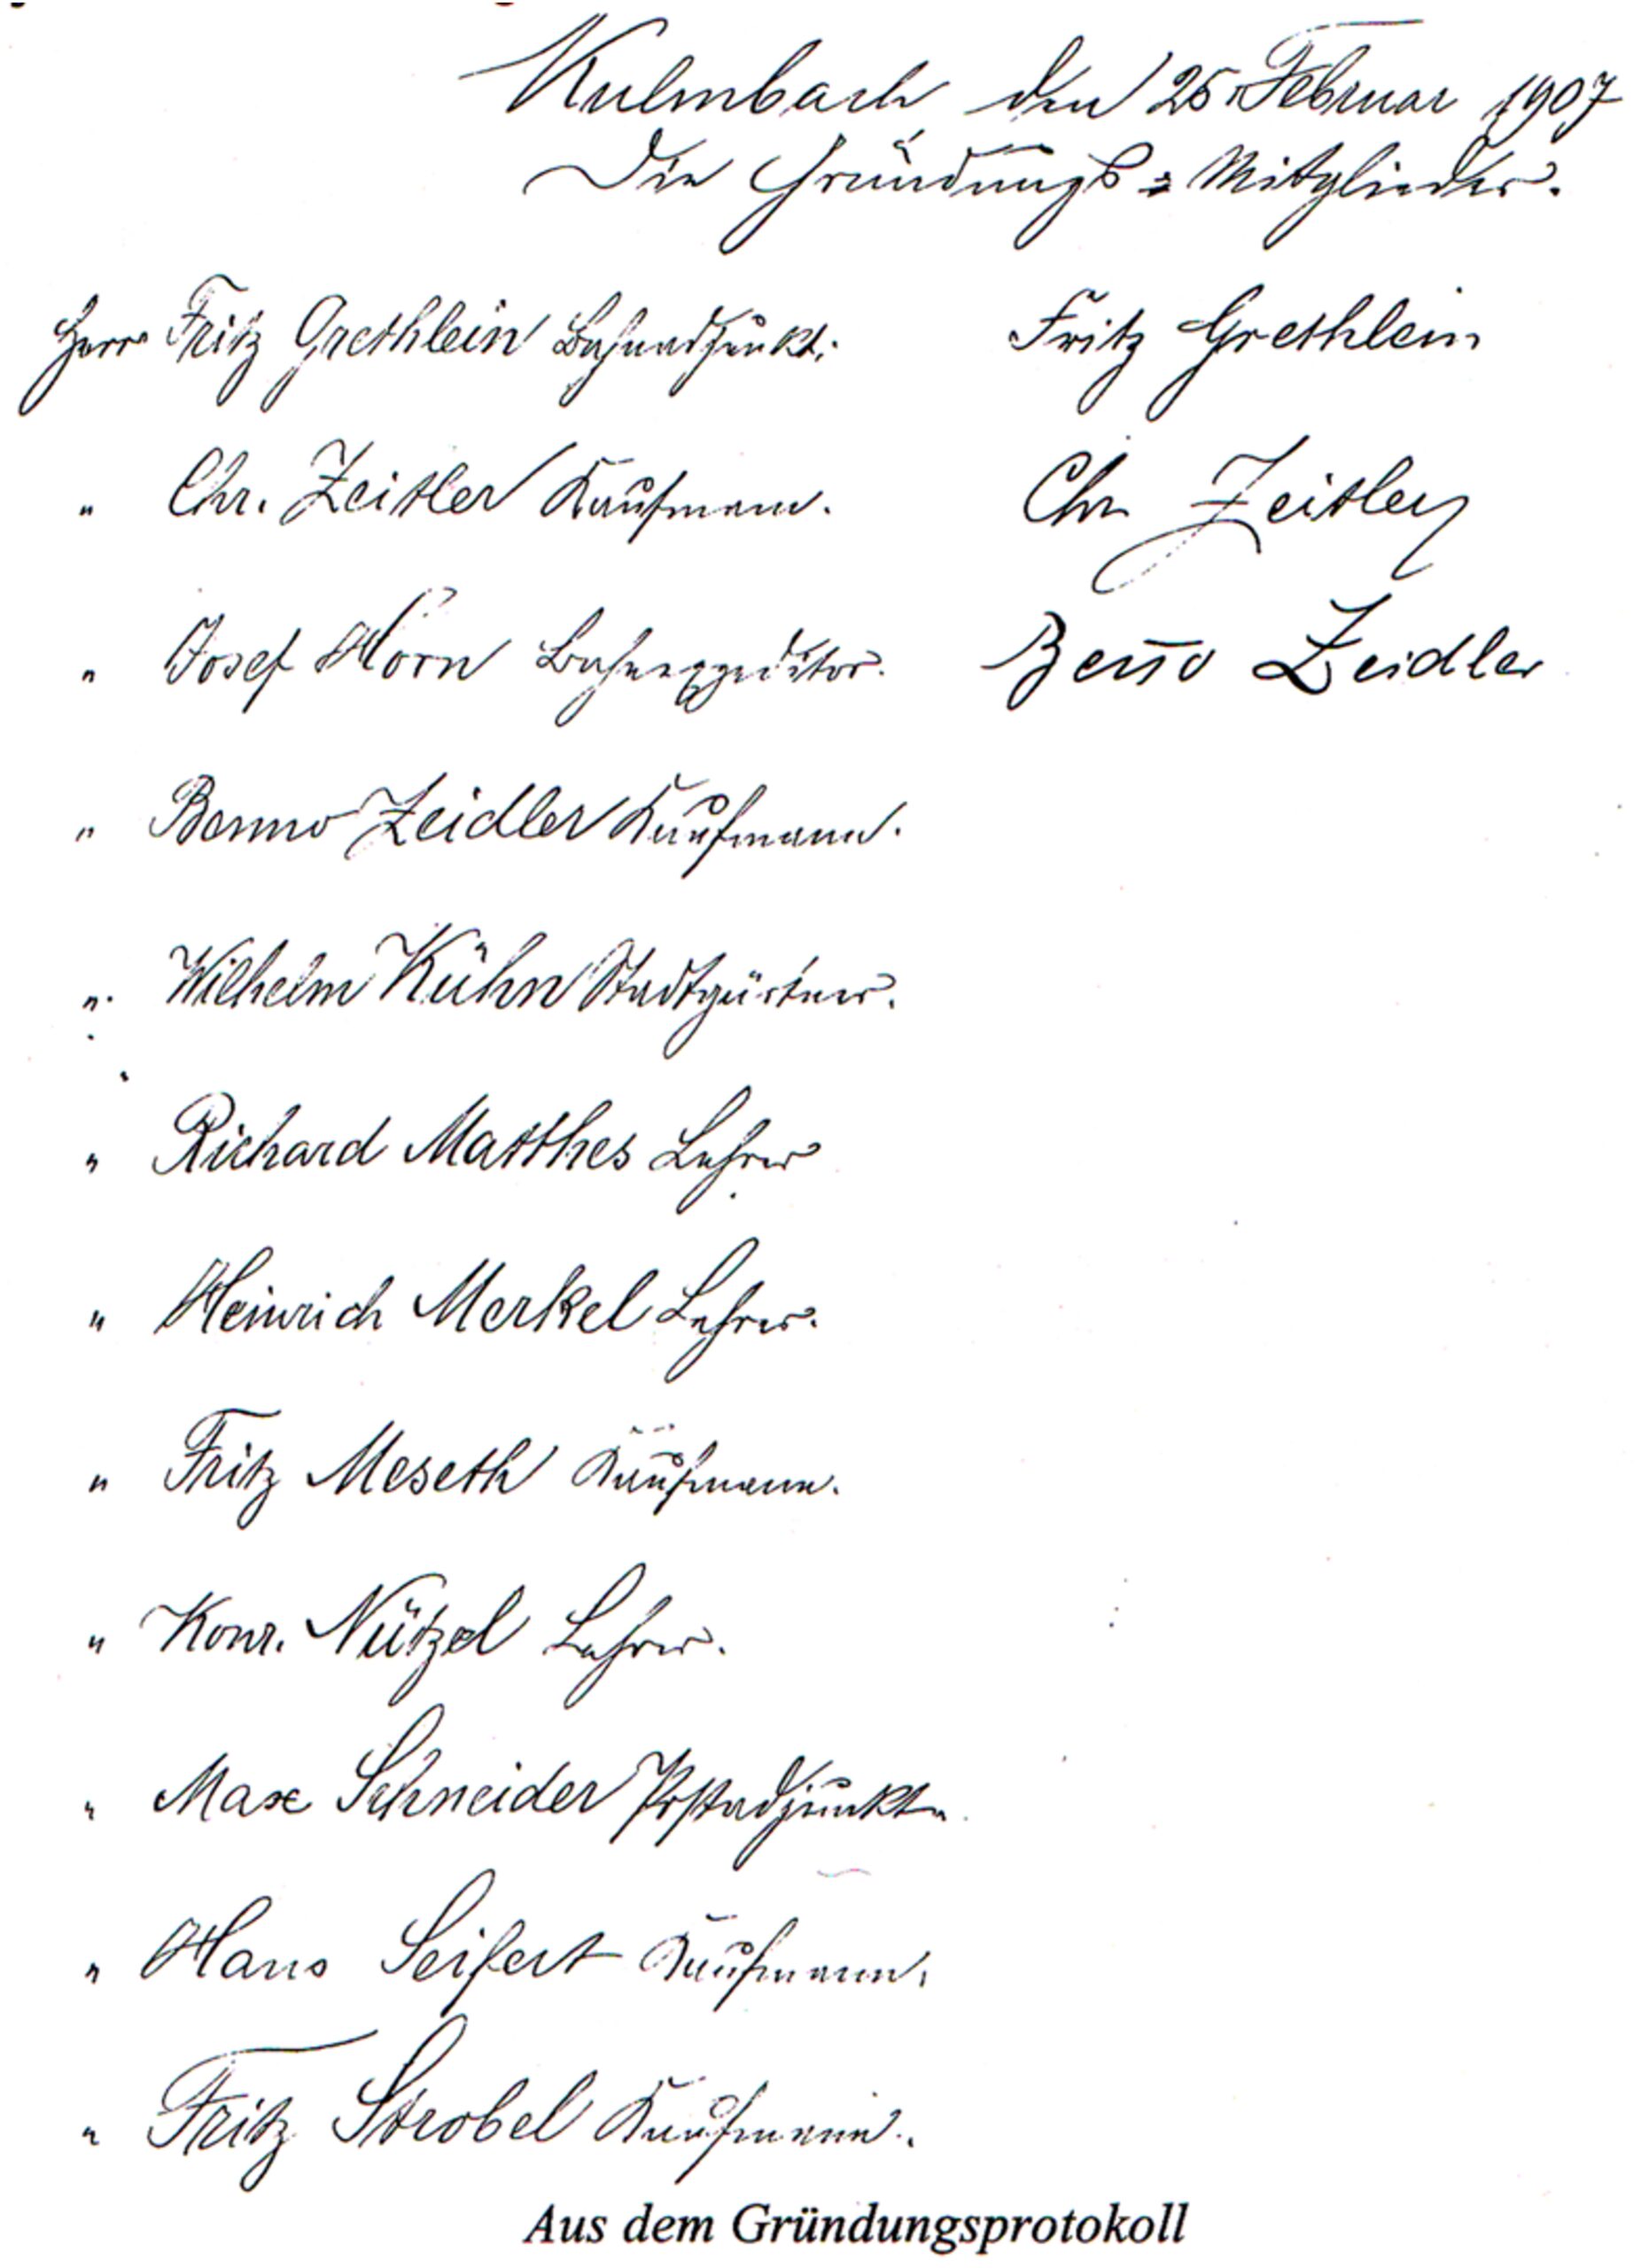 Kulmbach den 25. Februar 1907
Die Gründungs=Mitglieder.
Herr Fritz Grethlein Bahnadjunkt. Fritz Grethlein
" Chr. Zeitler Kaufmann. Chr. Zeitler
" Josef Horn Bahnexpeditor. Benno Zeidler
" Benno Zeidler Kaufmann.
" Wilhelm Kühn Stadtgärtner.
" Richard Matthes Lehrer
" Heinrich Merkel Lehrer.
" Fritz Meseth Kaufmann.
" Konr. Nützel Lehrer.
" Max Schneider Postadjunkt.
" Hans Seifert Kaufmann.
" Fritz Strobel Kaufmann.
Aus dem Gründungsprotokoll